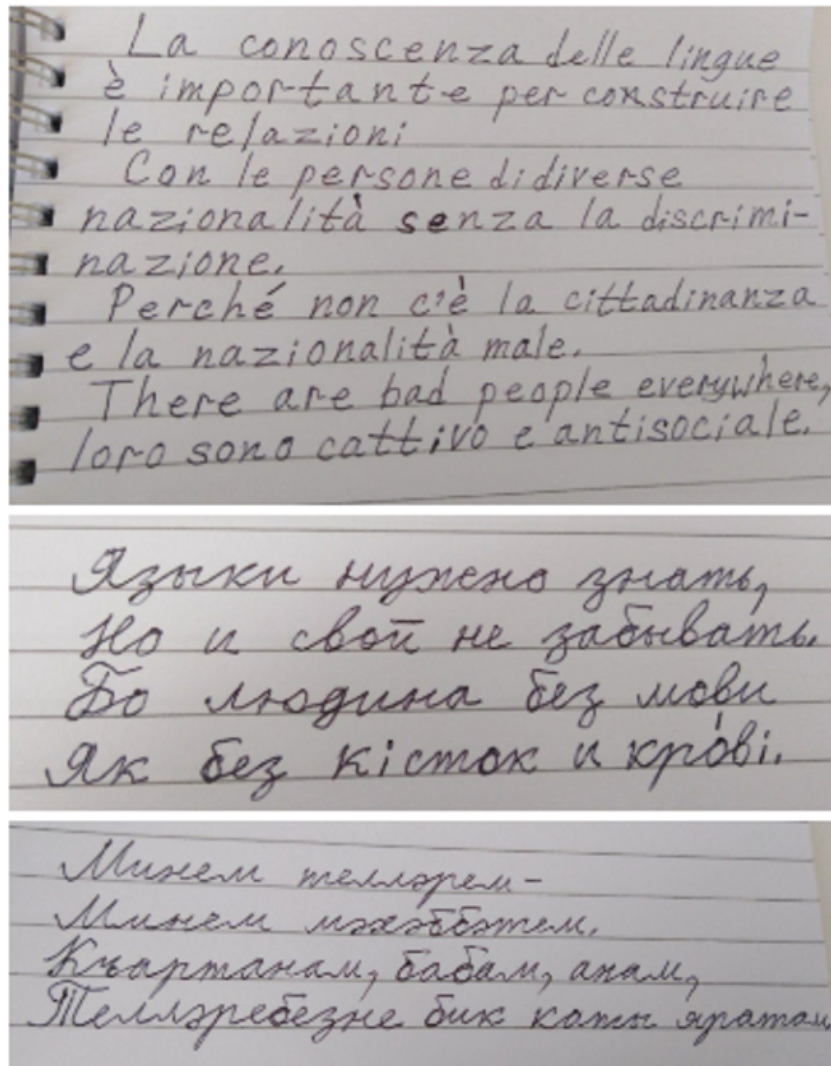 La conoscenza delle lingue
è importante per construire
le relazioni
Con le persone di diverse
nazionalità senza la discrimi-
nazione.
Perché non c'è la cittadinanza
e la nazionalità male.
There are bad people everywhere,
loro sono cattivo e antisociale.
Языки нужено знать,
Но и свой не забывать.
Бо людина без мови
Як без кісток и крові.
Минем телләрем-
Минем мәхәббәтем.
Къартанам, бабам, анам,
Телләребезне бик каты яратам